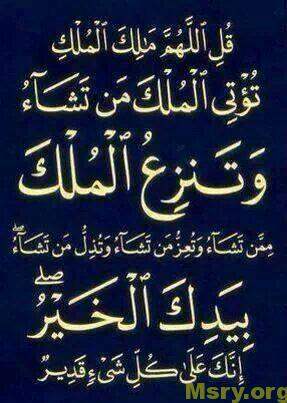 قُلِ ٱللَّهُمَّ مَـٰلِكَ ٱلْمُلْكِ
تُؤْتِى ٱلْمُلْكَ مَن تَشَآءُ
وَتَنزِعُ ٱلْمُلْكَ
مِمَّن تَشَآءُ وَتُعِزُّ مَن تَشَآءُ وَتُذِلُّ مَن تَشَآءُۖ
بِيَدِكَ ٱلْخَيْرُۖ
إِنَّكَ عَلَىٰ كُلِّ شَىْءٍ قَدِيرٌ
Msry.org